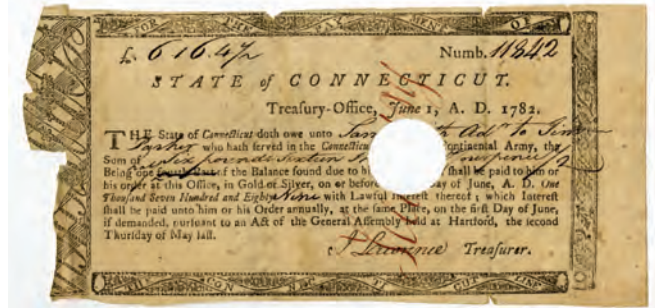 FOR THE PAYMENT OF
£. 6 16. 4½ Numb. 11842
STATE of CONNECTICUT.
Treasury-Office, June 1, A. D. 1782.
THE State of Connecticut doth owe unto Sam Adr to Simeon
Parker who hath served in the Connecticut Continental Army, the
Sum of Six pounds Sixteen fourpence 1/2
Being one fourth Part of the Balance found due to hi shall be paid to him or
his order at this Office, in Gold or Silver, on or before ay of June, A. D. One
Thouſand Seven Hundred and Eighty Nine with Lawful Intereſt thereof; which Intereſt
ſhall be paid unto him or his Order annually, at the ſame Place, on the firſt Day of June,
if demanded, purſuant to an Act of the General Aſſembly held at Hartford, the ſecond
Thurſday of May laſt.
J Lawrence Treaſurer.